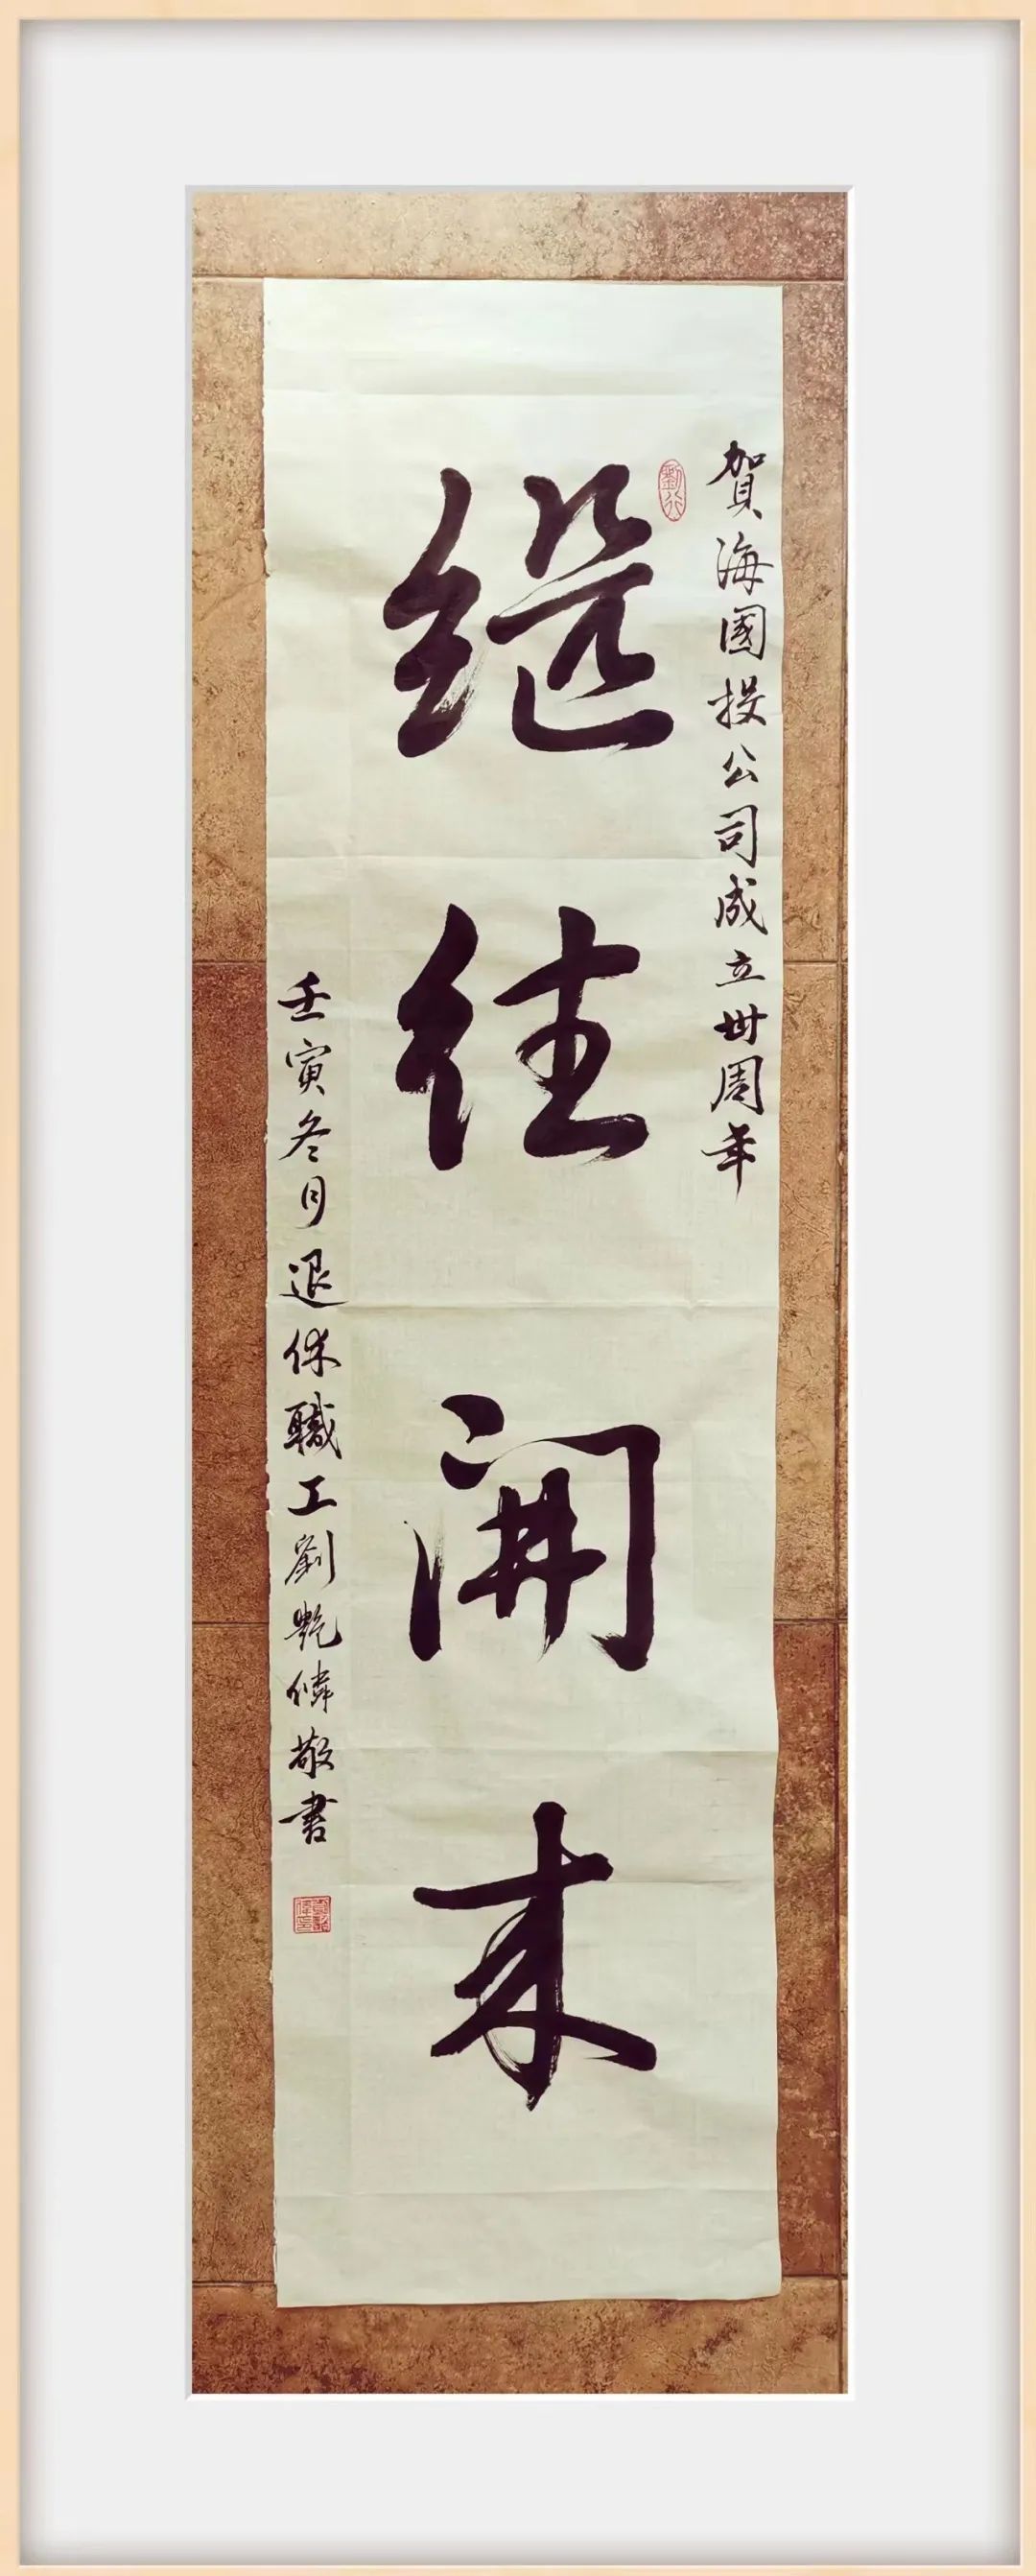 賀海國投公司成立卌周年
継往開来
壬寅冬月退休職工劉艷偉敬書